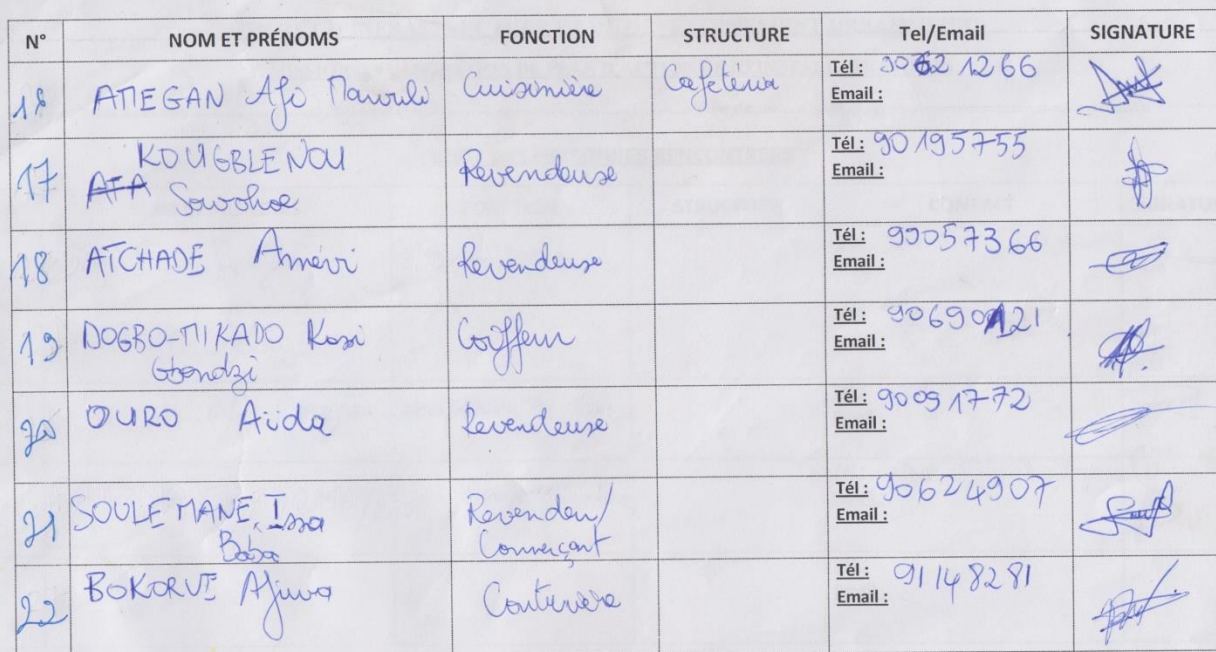 N° NOM ET PRÉNOMS FONCTION STRUCTURE Tel/Email SIGNATURE
18 ATIEGAN Afi Cuisinière Cafeteria Tél : 90621266
Email :
17 KOUGBLENOU Revendeuse Tél : 90195755
Email :
18 ATCHADE Amévi Revendeuse Tél : 99057366
Email :
19 DOGBO-MIKADO Kossi Coiffeur Tél : 90690121
Gbondzi Email :
20 OURO Aïda Revendeuse Tél : 90091772
Email :
21 SOULEMANE, Issa Revendeu/ Tél : 90624907
Baba Commerçant Email :
22 BOKORVI Afiwa Tél : 91148281
Email :